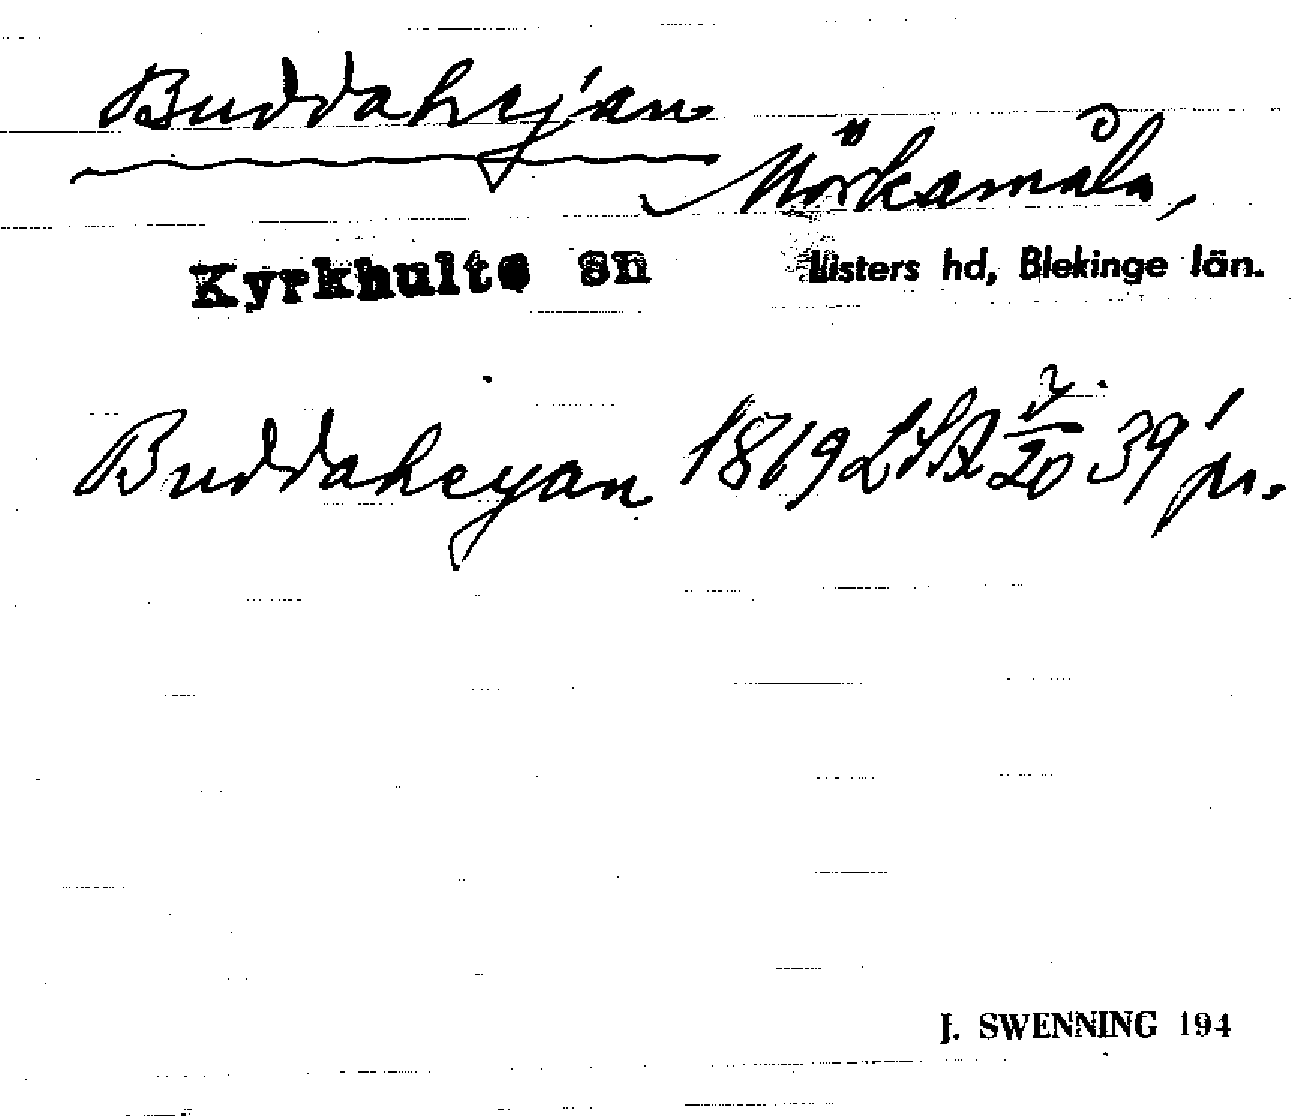 Buddahejan
Mörkamåla,
Kyrkhults sn Listers hd, Blekinge län.
Buddaheyan 1819 LSA 39 pr.
J. SWENNING 194